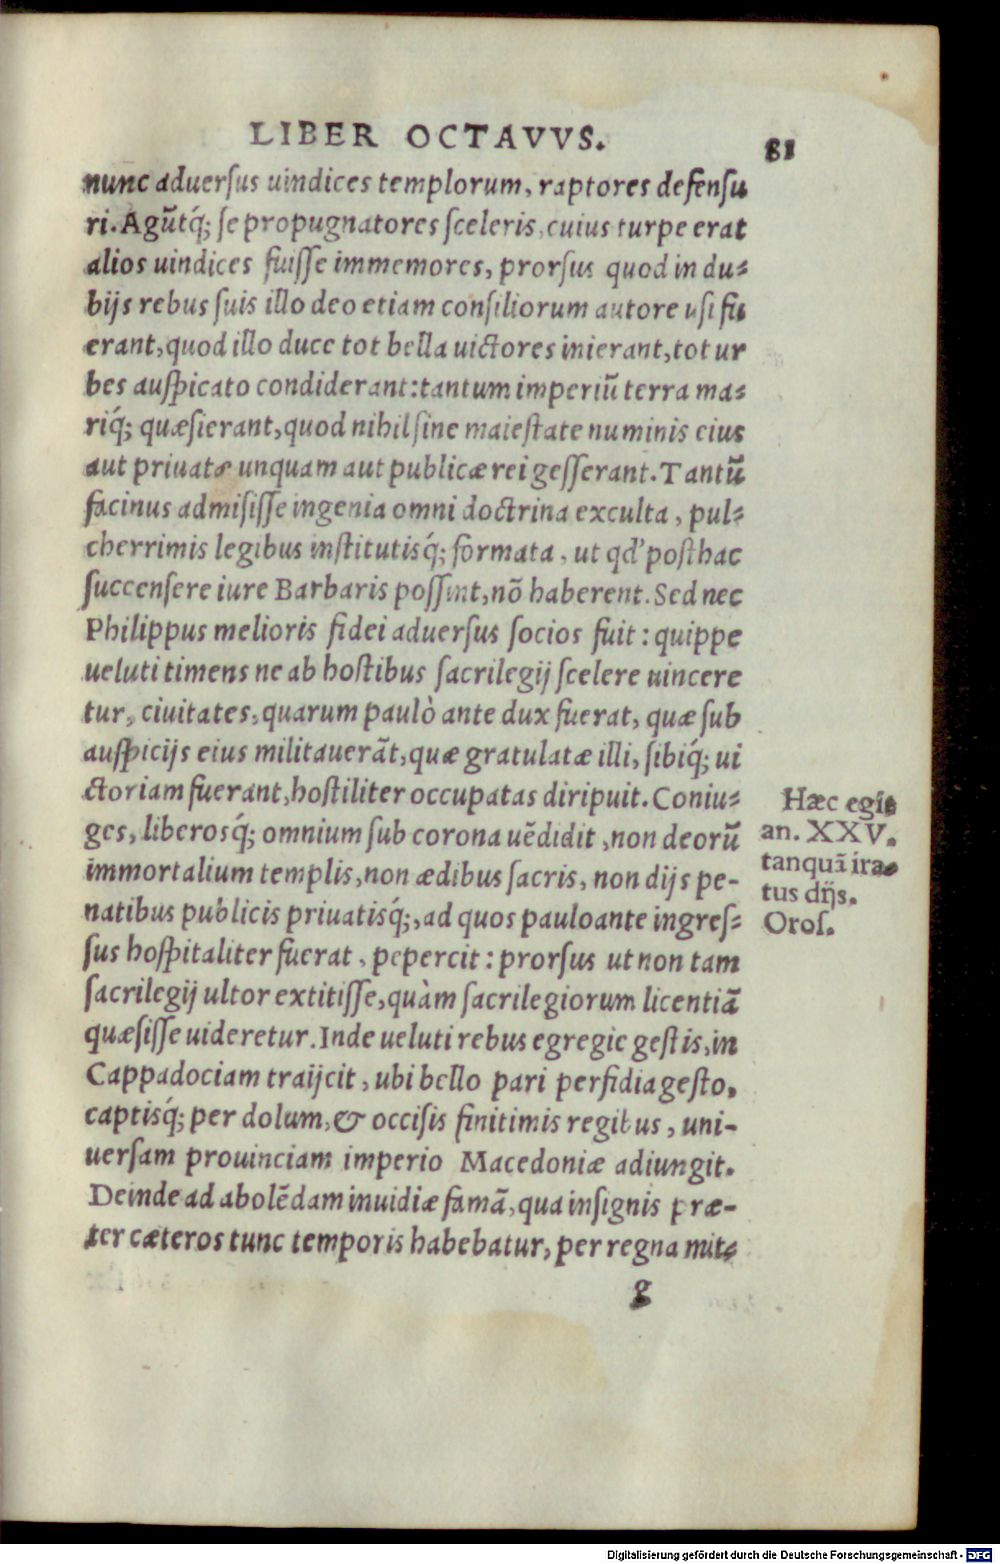 LIBER OCTAVVS.
81
nunc aduersus uindices templorum, raptores defensu
ri. Agũtq́; se propugnatores sceleris, cuius turpe erat
alios uindices fuisse immemores, prorsus quod in du-
bijs rebus suis illo deo etiam consiliorum autore usi fu
erant, quod illo duce tot bella uictores inierant, tot ur
bes auspicato condiderant: tantum imperiũ terra ma-
riq́; quæsierant, quod nihil sine maiestate numinis eius
aut priuatæ unquam aut publicæ rei gesserant. Tantũ
facinus admisisse ingenia omni doctrina exculta, pul-
cherrimis legibus institutisq́; formata, ut qd' posthac
succensere iure Barbaris possint, nõ haberent. Sed nec
Philippus melioris fidei aduersus socios fuit: quippe
ueluti timens ne ab hostibus sacrilegij scelere uincere
tur, ciuitates, quarum paulò ante dux fuerat, quæ sub
auspicijs eius militauerãt, quæ gratulatæ illi, sibiq́; ui
ctoriam fuerant, hostiliter occupatas diripuit. Coniu-
ges, liberosq́; omnium sub corona uẽdidit, non deorũ
immortalium templis, non ædibus sacris, non dijs pe-
natibus publicis priuatisq́;, ad quos pauloante ingres-
sus hospitaliter fuerat, pepercit: prorsus ut non tam
sacrilegij ultor extitisse, quàm sacrilegiorum licentiã
quæsisse uideretur. Inde ueluti rebus egregie gestis, in
Cappadociam traijcit, ubi bello pari perfidia gesto,
captisq́; per dolum, & occisis finitimis regibus, uni-
uersam prouinciam imperio Macedoniæ adiungit.
Deinde ad abolẽdam inuidiæ famã, qua insignis præ-
ter cæteros tunc temporis habebatur, per regna mit-
g
Hæc egit
an. XXV.
tanquã ira-
tus dijs.
Oros.
Digitalisierung gefördert durch die Deutsche Forschungsgemeinschaft - DFG